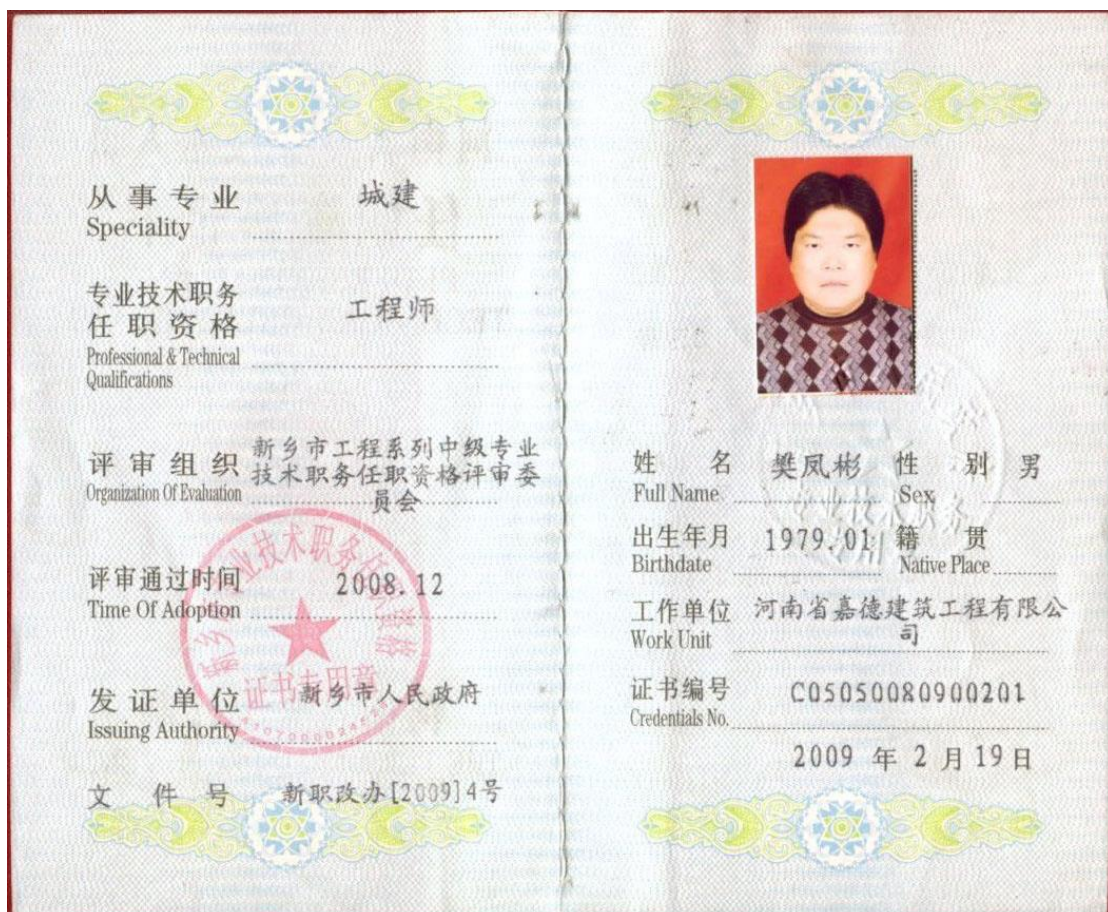 从事专业 城建
Speciality
专业技术职务
任职资格 工程师
Professional & Technical
Qualifications
评审组织 新乡市工程系列中级专业
技术职务任职资格评审委
员会
Organization Of Evaluation
评审通过时间 2008.12
Time Of Adoption
发证单位 新乡市人民政府
Issuing Authority
文件号 新职政办[2009]4号
证书专用章
姓名 樊凤彬 性别 男
Full Name Sex
专业技术职务
出生年月 1979.01 籍贯
Birthdate Native Place
工作单位 河南省嘉德建筑工程有限公
司
Work Unit
证书编号 C05050080900201
Credentials No.
2009 年 2 月 19 日